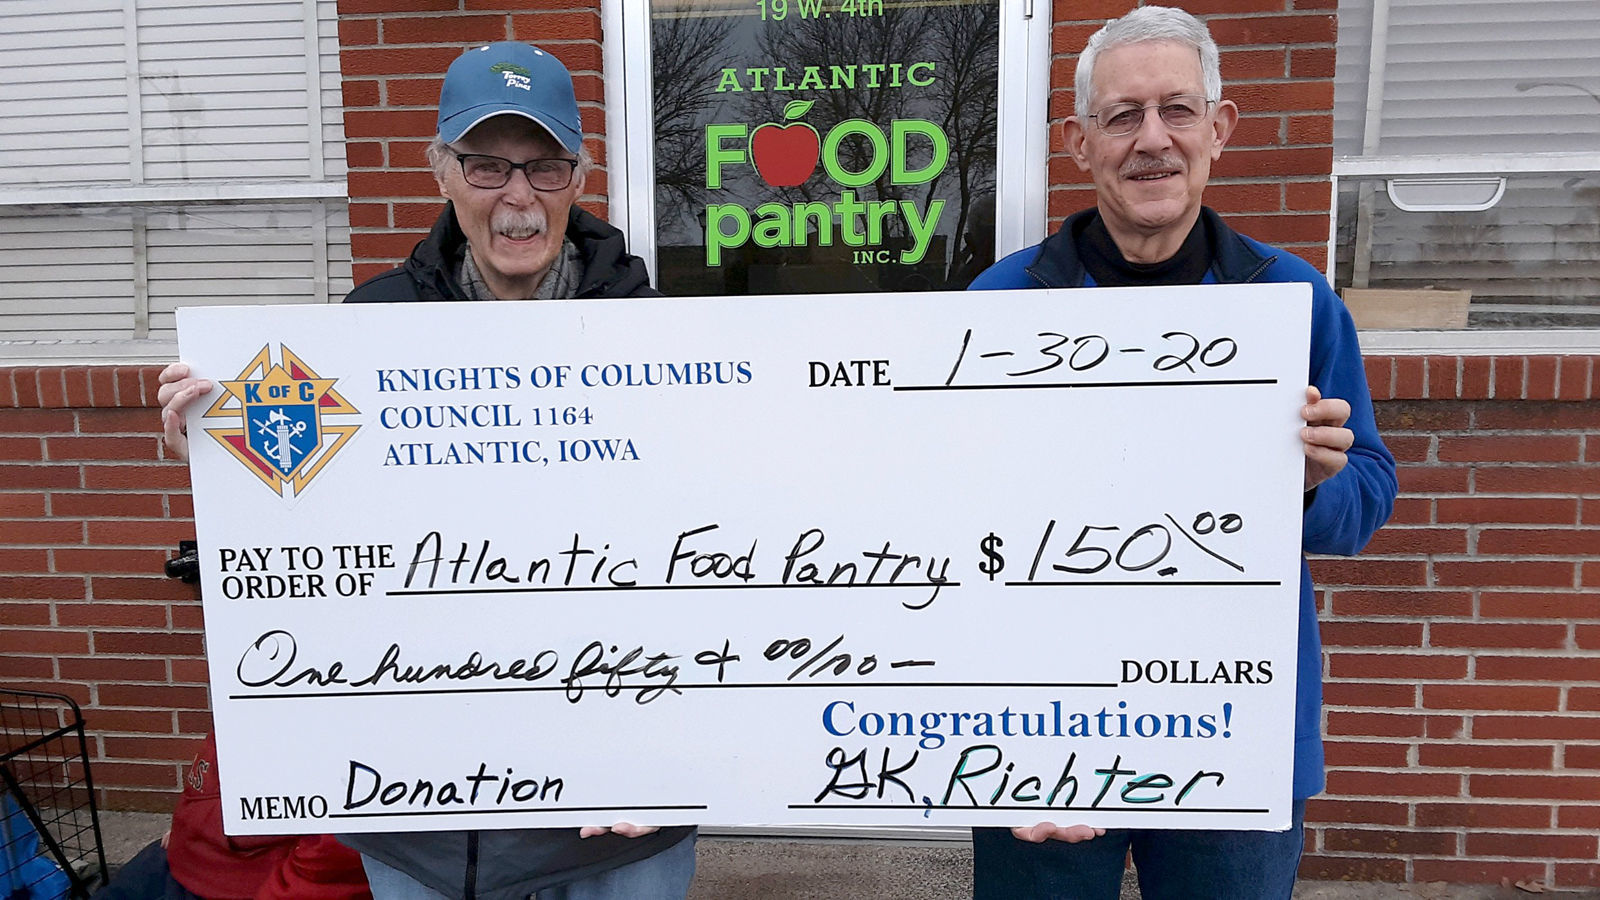 19 W. 4th
ATLANTIC
FOOD
pantry
INC.
Torrey
Pines
K OF C
KNIGHTS OF COLUMBUS
COUNCIL 1164
ATLANTIC, IOWA
DATE 1-30-20
PAY TO THE
ORDER OF Atlantic Food Pantry $ 150.00
One hundred fifty & 00/100 — DOLLARS
Congratulations!
MEMO Donation
GK, Richter